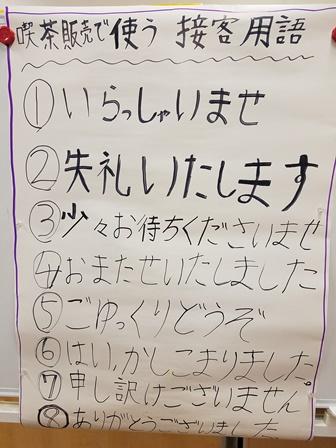 喫茶販売で使う 接客用語
① いらっしゃいませ
② 失礼いたします
③ 少々お待ちくださいませ
④ おまたせいたしました
⑤ ごゆっくりどうぞ
⑥ はい,かしこまりました。
⑦ 申し訳けございません
⑧ ありがとうございました